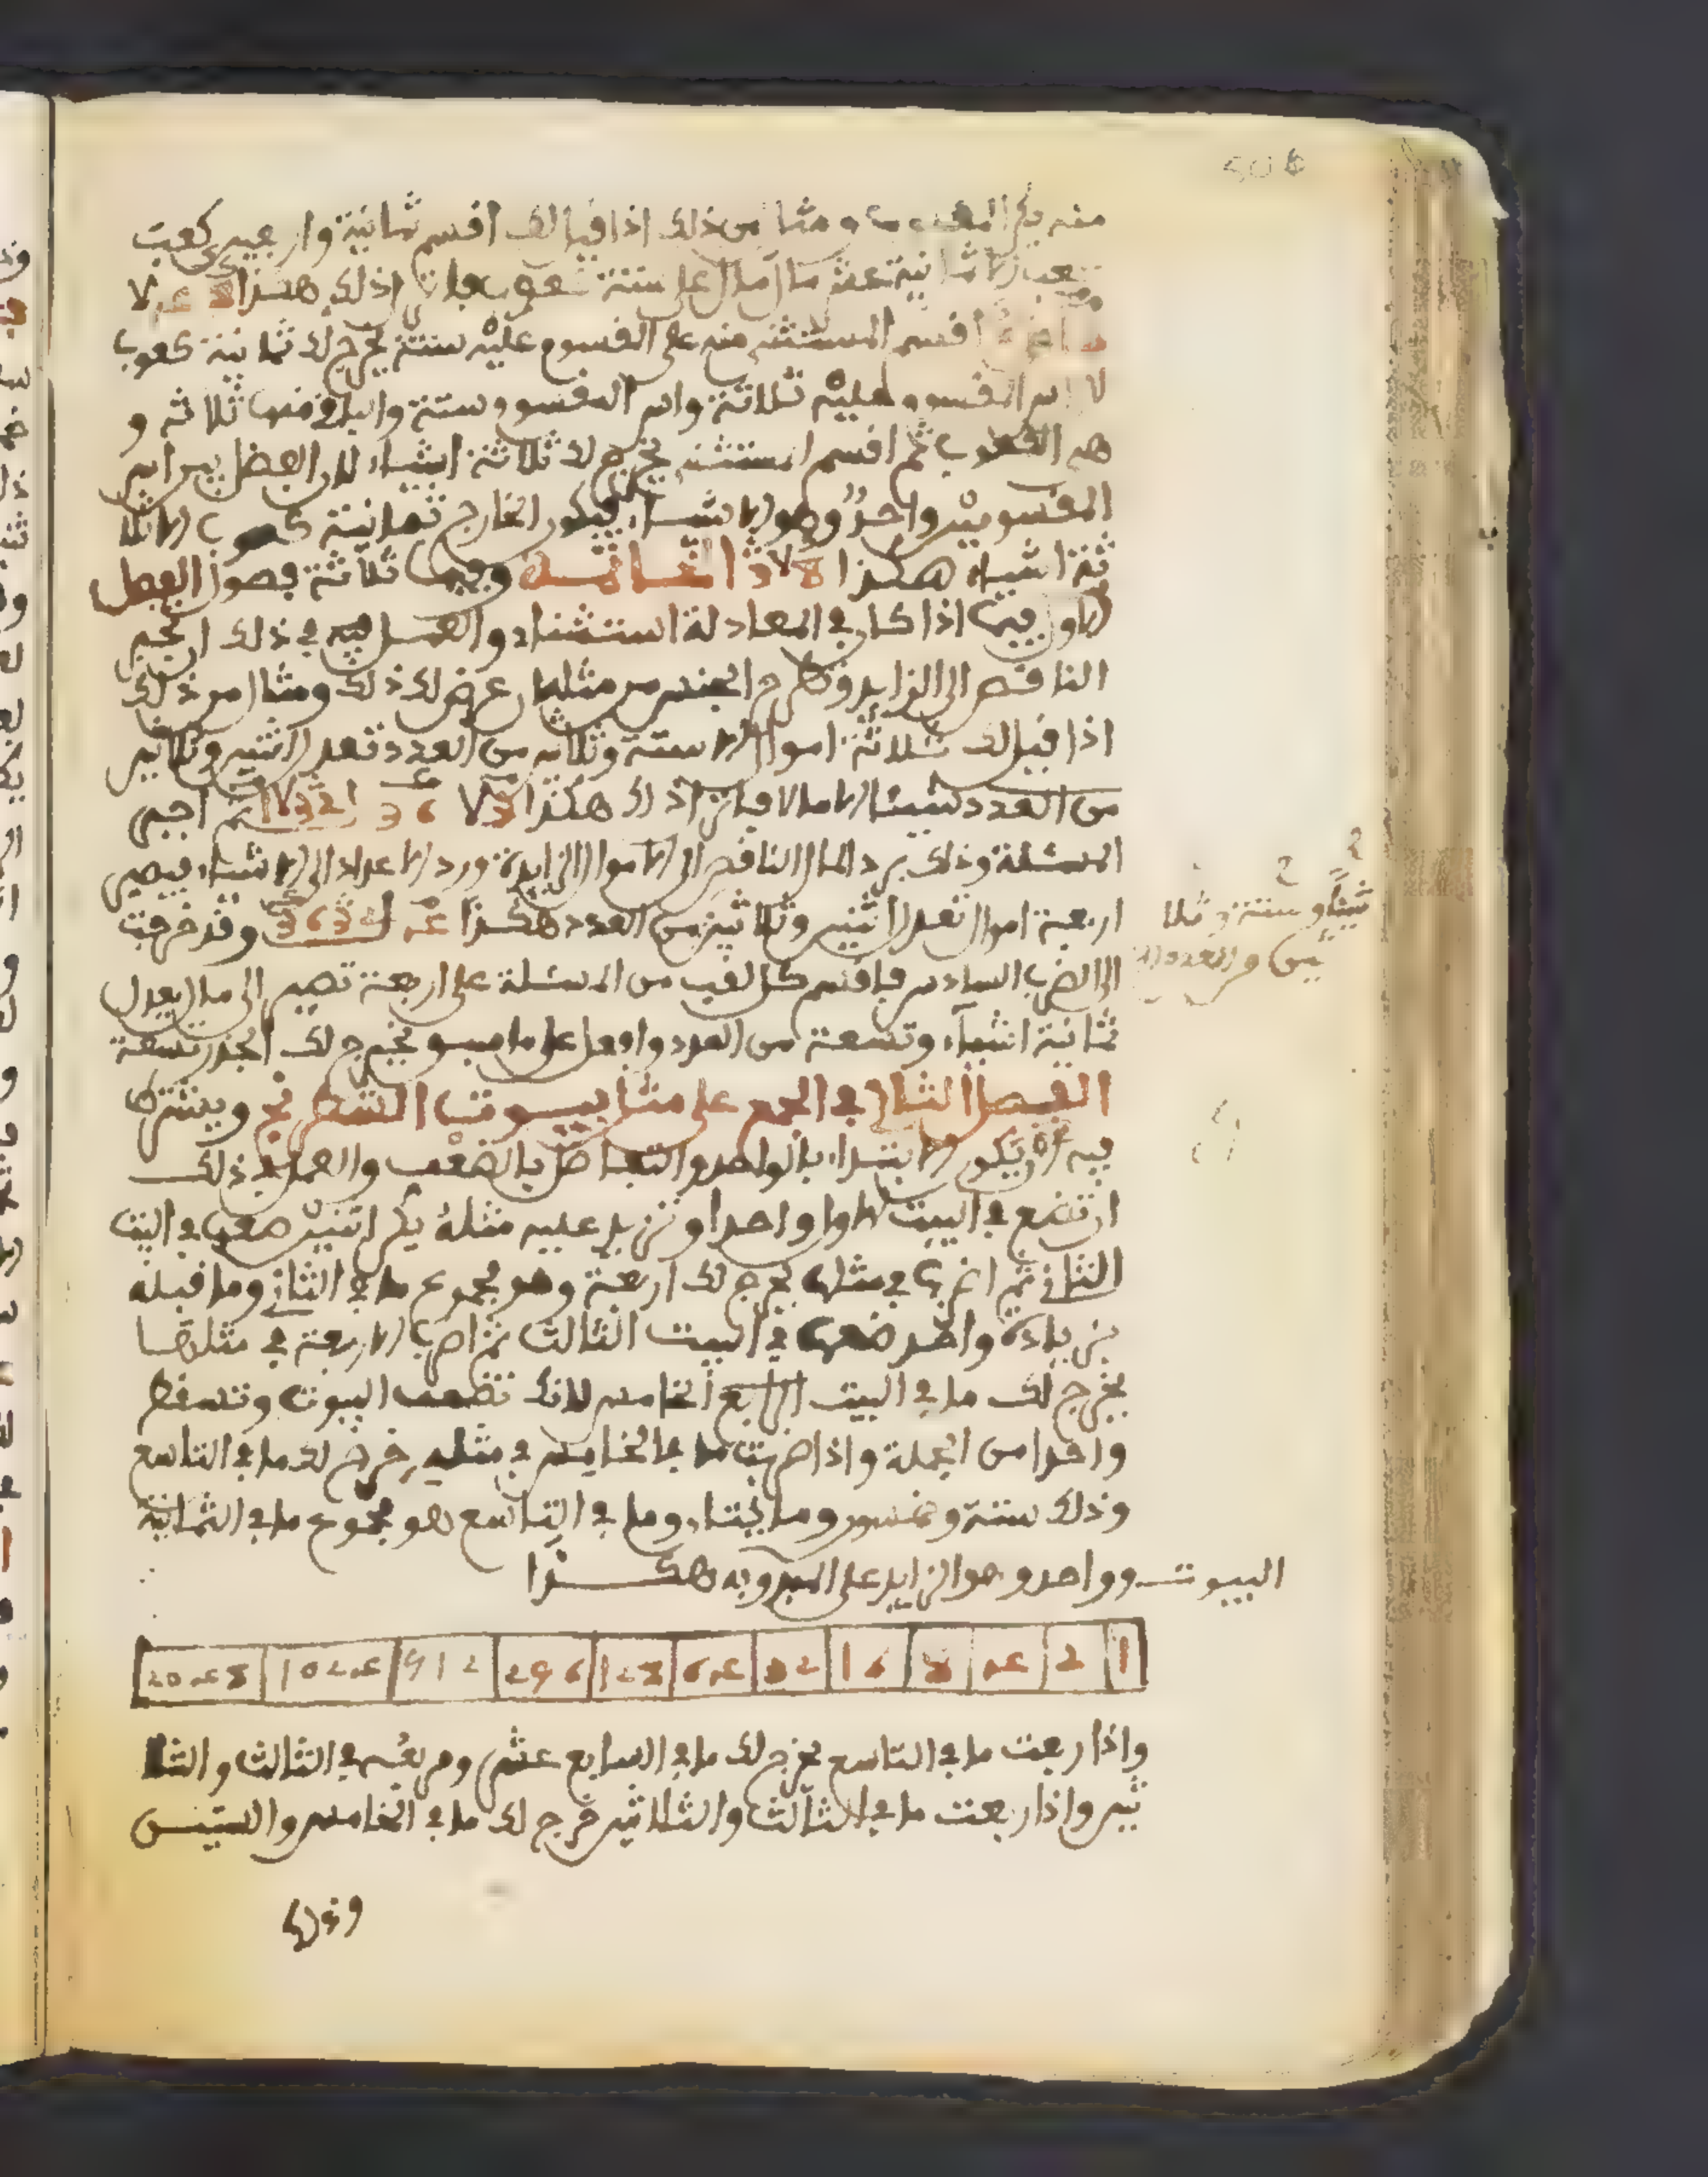 منه يكن المطلوب ومثال من ذلك اذا قيل لك اقسم ثمانية واربعين كعب
كعب الا ثمانية عشر مال مال على ستة كعوب فانزل ذلك هكذا
اقسم المستثنى منه على المقسوم عليه ستة يخرج لك ثمانية كعوب
لان اس المقسوم عليه ثلاثة واس المقسوم ستة والباقي منها ثلاثة و
هم الكعوب ثم اقسم المستثنى يخرج لك ثلاثة اشياء لان الفضل بين اس
المقسومين واحد وهو الاشياء فيكون الخارج ثمانية كعوب الا ثلا
ثة اشياء هكذا 8 لا 3 الخاتمة وفيها ثلاثة فصول الفصل
الاول فيما اذا كان في المعادلة استثناء والعمل فيه في ذلك ان تجبر
الناقص الى الزايد وتطرح الجنس من مثله عرض لك ذلك ومثال من ذلك
اذا قيل لك ثلاثة اموال الا ستة وثلاثين من العدد تعدل اثنين وثلاثين
من العدد شيئا الا مالا فانزل ذلك هكذا 3 لا 36 ل 32 لا 1 ثم اجبر
المسئلة وذلك برد المال الناقص الى الاموال الزايدة ورد الاعداد الى الاشياء فيصير
اربعة اموال تعدل اثنين وثلاثين من العدد هكذا 4 ل 32 36 وقد خرجت
شيئا وستة وثلا
ثين من العدد
الى الضرب السادس فاقسم كل لقب من المسئلة على اربعة تصير الى مال يعدل
ثمانية اشياء وتسعة من العدد وافعل على ما سبق يخرج لك الجذر تسعة
الفصل الثاني في الجمع على مثل بيوت الشطرنج ويشترط
فيه ان يكون الابتداء بالواحد والتفاضل بالضعف والعمل في ذلك
ان تضع في البيت الاول واحدا وتزيد عليه مثله يكن اثنين ضعها في البيت
الثاني ثم اضربها في مثلها يخرج لك اربعة وهو مجموع ما في الثاني وما قبله
بزيادة واحد ضعها في البيت الثالث ثم اضرب الاربعة في مثلها
يخرج لك ما في البيت الرابع الخامس لانك تضعف البيوت وتسقط
واحدا من الجملة واذا ضربت ما في الخامس في مثله خرج لك ما في التاسع
وذلك ستة وخمسون ومايتان وما في التاسع هو مجموع ما في الثمانية
البيوت وواحد وهو الزايد على المبدو به هكذا
1 2 4 8 16 32 64 128 256 512 1024 2048
واذا ربعت ما في التاسع يخرج لك ما في السابع عشر ومربعه في الثالث والثلا
ثين واذا ربعت ما في الثالث والثلاثين خرج لك ما في الخامس والستين
وذلك